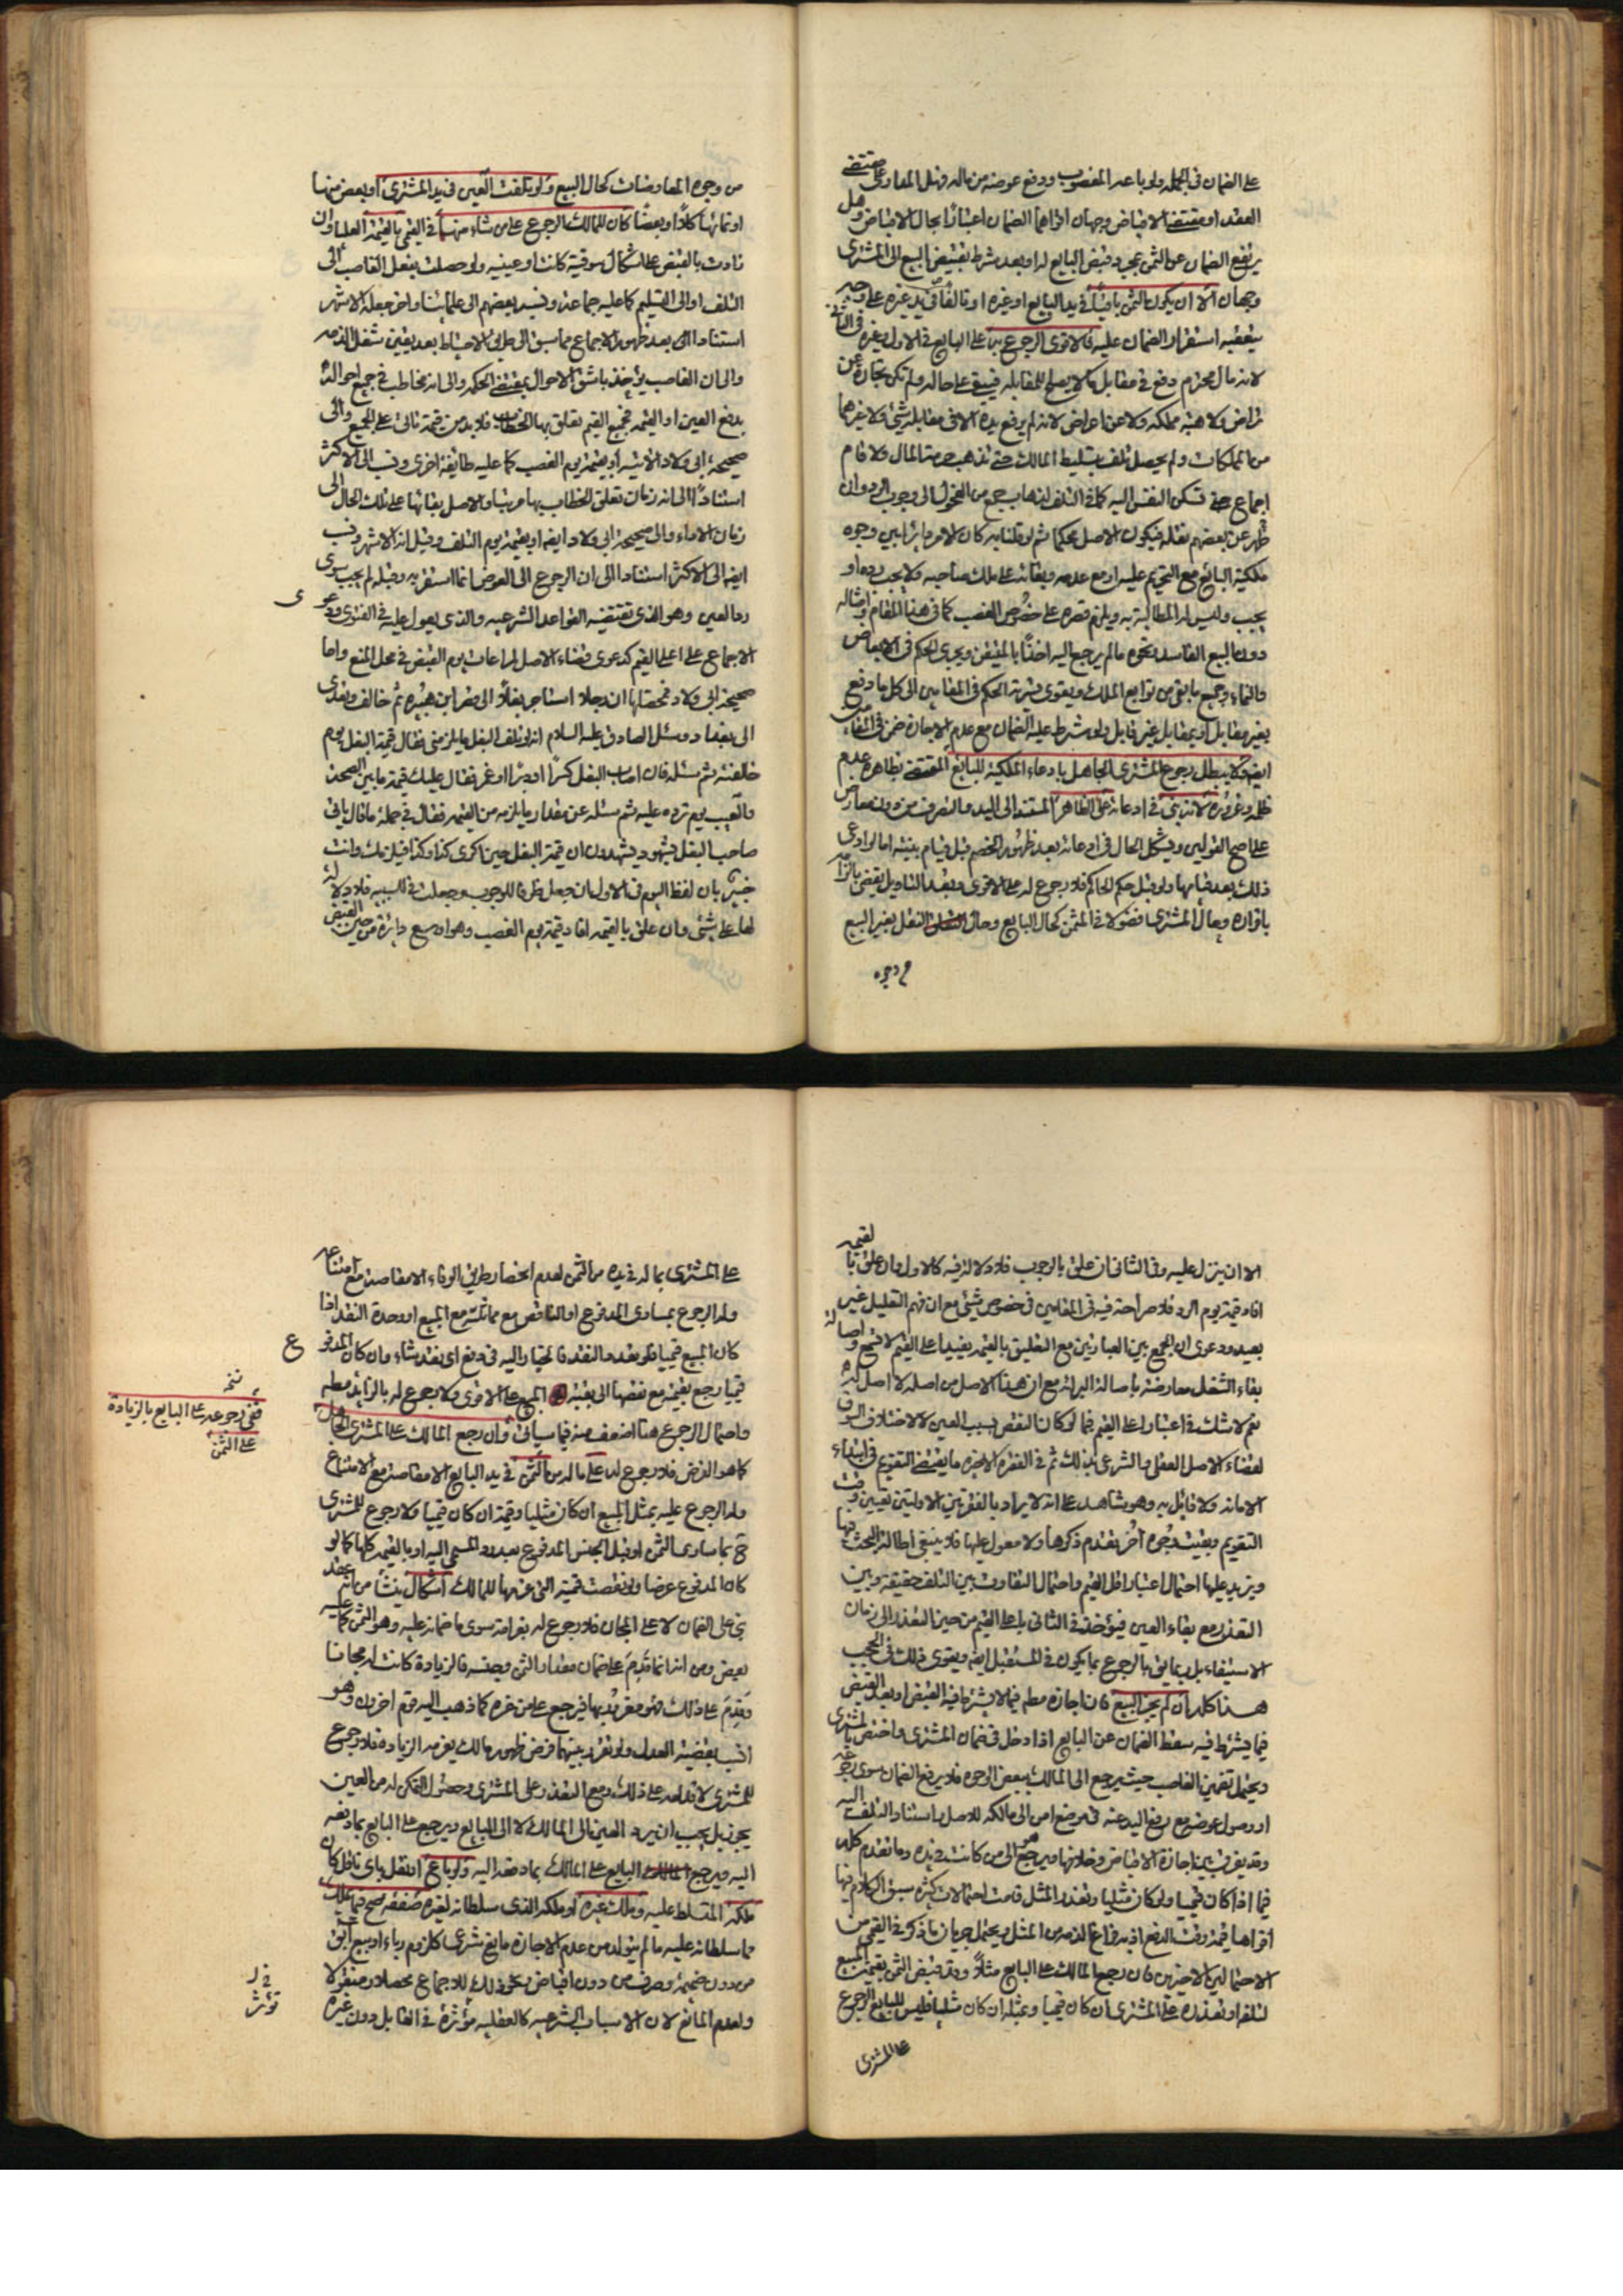 على الضمان في الجملة ولو باعه المغصوب ودفع عوضه من ماله فهل المعاوضة مقتضى
العقد او مقتضى الاقباض وجهان اقواهما الضمان اعتبارا بحال الاقباض وهل
يرتفع الضمان عن الثمن بمجرد قبض البايع له او بعد شرط تقبيض المبيع الى المشتري
وجهان الا ان يكون الثمن باقيا في يد البايع او غيره او تالفا في يد غيره على وجه
يتعقبه استقرار الضمان عليه فالاقوى الرجوع به على البايع في الاول وغيره في الثاني
لانه مال محترم دفع في مقابل ما لا يصلح للمقابلة فيبقى على حاله ولم تكن تجارة عن
تراض ولا هبة مملكة ولا عن اعراض لانه لم يرفع يده الا في مقابلة شيء ولا غيرهما
من المملكات ولم يحصل تلف بتسليط المالك حتى تذهب حرمة المال ولا قام
اجماع حتى تسكن النفس اليه كما في التلف لذهاب جمع من الفحول الى وجوب الرد وان
ظهر عن بعضهم نقله فيكون الاصل محكما ثم لو قلنا به كان الامر دائرا بين وجوه
ملكية البائع مع التحريم عليه او مع عدمه وبقائه على ملك صاحبه ولا يجب رده او
يجب وليس له المطالبة به ويلزم قصره على خصوص الغصب كما في هذا المقام وامثاله
دون البيع الفاسد ونحوه مالم يرجع اليه اخذا بالمتيقن ويجري الحكم في الابعاض
والنماء وجميع ما بقي من توابع الملك ويقوى تسرية الحكم في المقامين الى كل ما دفع
بغير مقابل او بمقابل غير قابل ولو شرط عليه الضمان مع عدم الاجازة ضمن في المقامين
ايضا ولا يبطل رجوع المشتري الجاهل بادعاء الملكية للبائع المقتضى بظاهره عدم
ظلمه وغروره لانه بنى في ادعائه على الظاهر المستند الى اليد والتصرف من دون معارض
على اصح القولين ويشكل الحال في ادعائه بعد ظهور الخصم قبل قيام بينته اما لو ادعى
ذلك بعد قيامها ولو قبل حكم الحاكم فلا رجوع له على الاقوى وبعد التاويل يقضى بالزامه
باقراره وحال المشتري فضولا في المثمن كحال البايع وحال النقل بغير البيع
من وجوه
من وجوه المعاوضات كحال البيع ولو تلفت العين في يد المشتري او بعض منها
او نمائها كلا او بعضا كان للمالك الرجوع على من شاء منهما في القيمي بالقيمة العليا وان
زادت بالقبض على اشكال سوقية كانت او عينية ولو حصلت بفعل الغاصب الى
التلف او الى التسليم كما عليه جماعة ونسبه بعضهم الى علمائنا واخر جعله الاشهر
استنادا الى بعد ظهور الاجماع مما سبق الى طريق الاحتياط بعد يقين شغل الذمة
والى ان الغاصب يؤخذ باشق الاحوال بمقتضى الحكمة والى انه مخاطب في جميع احواله
بدفع العين او القيمة فجميع القيم تعلق بها الخطاب فلا بد من قيمة تاتي على الجميع والى
صحيحة ابي ولاد الاتية او بقيمة يوم الغصب كما عليه طايفة اخرى ونسب الى الاكثر
استنادا الى انه زمان تعلق الخطاب بها مرتبا والاصل بقائها على ذلك الحال الى
زمان الاداء والى صحيحة ابي ولاد ايضا او بقيمة يوم التلف وقيل انه الاشهر ونسب
ايضا الى الاكثر استنادا الى ان الرجوع الى العوض انما استقر به وقبله لم يجب سوى
رد العين وهو الذي تقتضيه القواعد الشرعية والذي يعول عليه في الفتوى ودعوى
الاجماع على اعلى القيم كدعوى قضاء الاصل لمراعات يوم القبض في محل المنع واما
صحيحة ابي ولاد فمحصلها ان رجلا استاجر بغلا الى قصر ابن هبيرة ثم خالف وتعدى
الى بغداد وسئل الصادق عليه السلام انه لو تلف البغل ما يلزمني فقال قيمة البغل يوم
خالفته ثم سئله فان اصاب البغل كسرا او دبرا او غمز فقال عليك قيمة ما بين الصحة
والعيب يوم ترده عليه ثم سئله عن مقدار ما يلزمه من القيمة فقال في جملة ما قال ياتي
صاحب البغل بشهود يشهدون ان قيمة البغل حين اكرى كذا وكذا فيلزمك وانت
خبير بان لفظ اليوم في الاول ان جعل ظرفا للوجوب وجعلت في للسببية فلا دلالة
لها على شيء وان علق بالقيمة افاد قيمة يوم الغصب وهو اوسع دائرة من حين القبض
الا ان ينزل عليه وفي الثاني ان علق بالوجوب فلا دلالة فيه كالاول وان علق بالقيمة
افاد قيمة يوم الرد فلا صراحة فيه في المقامين في خصوص شيء مع ان فهم التعليل غير
بعيد ودعوى ان الجمع بين العبارتين مع التعليق بالقيمة يفيد اعلى القيم لا تتجه واصالة
بقاء الشغل معارضة باصالة البرائة مع ان هذا الاصل من اصله لا اصل له
نعم لا شك في اعتبار اعلى القيم فيما لو كان النقص بسبب العين لا لاختلاف السوق
لقضاء الاصل العقلي والشرعي بذلك ثم في الفقرة الاخيرة ما يقتضي التقويم في ابتداء
الامانة ولا قائل به وهو شاهد على انه لا يراد بالفقرتين الاوليتين تعيين وقت
التقويم وبقيت وجوه اخر تقدم ذكرها ولا معول عليها فلا ينبغي اطالة البحث فيها
ويزيد عليها احتمال اعتبار اقل القيم واحتمال التفاوت بين التلف حقيقة وبين
التعذر مع بقاء العين فيؤخذ في الثاني باعلى القيم من حين التعذر الى زمان
الاستيفاء بل ربما يقال بالرجوع بما يكون في المستقبل ايضا ويقوى ذلك في الحجب
هذا كله ان لم يجز البيع فان اجازه مطلقا فيما لا يشترط فيه القبض او بعد القبض
فيما يشترط فيه سقط الضمان عن البايع اذا دخل في ضمان المشتري واختص بالمشتري
ويحتمل تضمين الغاصب حيث يرجع الى المالك ببعض الوجوه فلا يرفع الضمان سوى رجوعه
او وصول عوض مع رفع اليد عنه في موضع امن الى مالكه للاصل واستناد التلف اليه
وقد يفرق بين اجازة الاقباض وخلافها ويرجع هو الى من كانت في يده وما تقدم كله
فيما اذا كان قيميا ولو كان مثليا وتعذر المثل قامت احتمالات كثيرة سبق الكلام فيها
اقواها قيمة وقت الدفع اذ به فراغ الذمة من المثل ويحتمل جريان ما ذكر في القيمي من
الاحتمالين الاخيرين فان رجع المالك على البايع مثلا وقد قبض الثمن بقيمة المبيع
لتلفه او تعذره على المشتري ان كان قيميا وبمثله ان كان مثليا فليس للبايع الرجوع
على المشتري
على المشتري بما له في يده من الثمن لعدم انحصار طريق الوفاء الا مقاصة مع امتناعه
وله الرجوع بمساوي المدفوع او الناقص مع مماثلته مع المبيع او وحدة النقد اذا
كان المبيع قيميا فلو تعدد النقد فالخيار اليه في دفع اي نقد شاء وان كان المدفوع
قيميا رجع بقيمته مع نقصها الى بقية المبيع على الاقوى ولا رجوع له بالزايد مطلقا
واحتمال الرجوع هنا اضعف منه فيما سياتي وان رجع المالك على المشتري الجاهل
كما هو الفرض فلا رجوع له على ماله من الثمن في يد البايع الا مقاصة مع الامتناع
وله الرجوع عليه بمثل المبيع ان كان مثليا وقيمته ان كان قيميا ولا رجوع للمشتري
ح بما ساوى الثمن او قبل الجنس المدفوع بعد رد المسمى اليه او بالقيمة كلها كما لو
كان المدفوع عرضا ولو نقصت قيمته التي غرمها للمالك اشكال ينشأ من انه عقد
بني على الضمان لا على المجان فلا رجوع له بغرامة سوى ما ضمانه عليه وهو الثمن كما عليه
بعض ومن انه انما قدم على ضمان مقدار الثمن وجنسه فالزيادة كانت له مجانا
وقدم على ذلك فهو مغرور بها فيرجع على من غره كما ذهب اليه قوم اخرون وهو
انسب بقضية العدل ولو تفرد بينهما فرض ظهور مالك يغرمه الزيادة فلا رجوع
للمشتري لاقدامه على ذلك ومع التعذر على المشتري وحصول التمكن له من العين
يجوز بل يجب ان يرد العين الى المالك لا الى البايع ويرجع على البايع بما دفعه
اليه ويرجع البايع على المالك بما دفعه اليه ولو باع او نقل باي ناقل كان
ملكه المتسلط عليه وملك غيره او ملكه الذي سلطانه لغيره صفقة صح فيما يملك
مما سلطانه عليه مالم يتولد من عدم الاجازة مانع شرعي كلزوم رباء او بيع ابق
من دون ضميمة وصرف من دون اقباض ونحو ذلك للاجماع محصلا ومنقولا
ولعدم المانع لان الاسباب الشرعية كالعقلية مؤثرة في القابل دون غيره
نسخه
ففي رجوعه على البايع بالزيادة
على الثمن
ع
ى
تؤثر